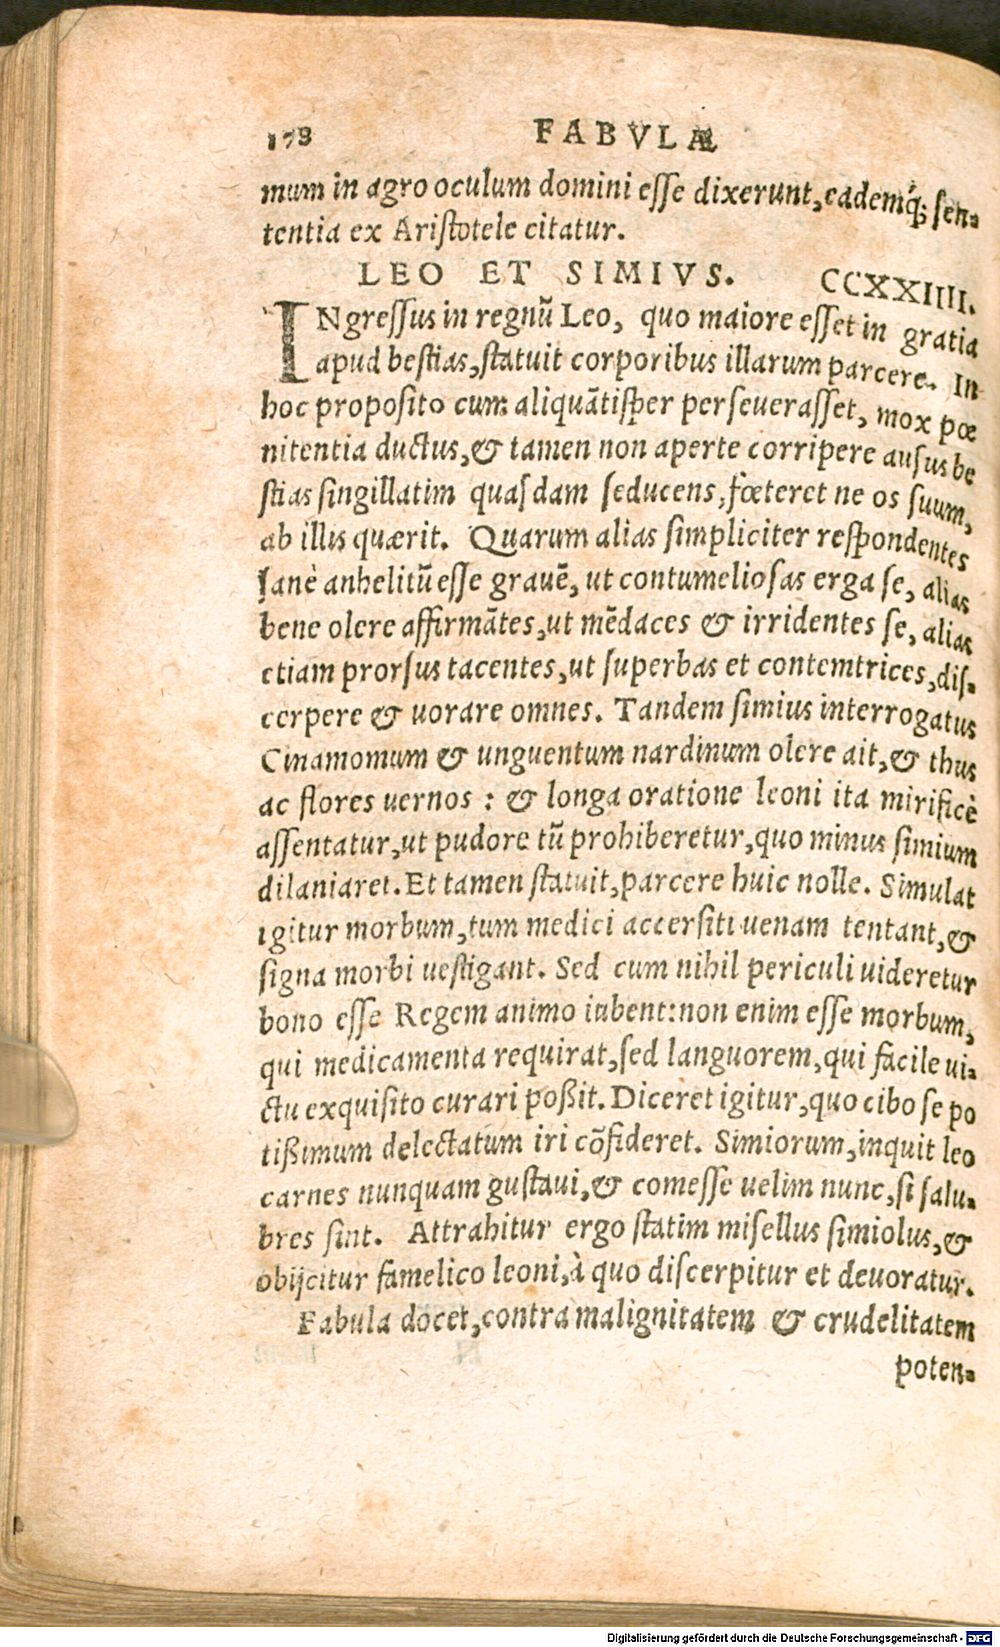 178 FABVLAE
mum in agro oculum domini esse dixerunt, eademq́; sen-
tentia ex Aristotele citatur.
LEO ET SIMIVS. CCXXIIII.
INgressus in regnū Leo, quo maiore esset in gratia
apud bestias, statuit corporibus illarum parcere. In
hoc proposito cum aliquātisper perseuerasset, mox pœ
nitentia ductus, & tamen non aperte corripere ausus be
stias singillatim quasdam seducens, fœteret ne os suum,
ab illis quærit. Quarum alias simpliciter respondentes
sanè anhelitū esse grauē, ut contumeliosas erga se, alias
bene olere affirmātes, ut mēdaces & irridentes se, alias
etiam prorsus tacentes, ut superbas et contemtrices, dis-
cerpere & uorare omnes. Tandem simius interrogatus
Cinamomum & unguentum nardinum olere ait, & thus
ac flores uernos : & longa oratione leoni ita mirificè
assentatur, ut pudore tū prohiberetur, quo minus simium
dilaniaret. Et tamen statuit, parcere huic nolle. Simulat
igitur morbum, tum medici accersiti uenam tentant, &
signa morbi uestigant. Sed cum nihil periculi uideretur
bono esse Regem animo iubent: non enim esse morbum,
qui medicamenta requirat, sed languorem, qui facile ui-
ctu exquisito curari poßit. Diceret igitur, quo cibo se po
tißimum delectatum iri cōfideret. Simiorum, inquit leo
carnes nunquam gustaui, & comesse uelim nunc, si salu-
bres sint. Attrahitur ergo statim misellus simiolus, &
obijcitur famelico leoni, à quo discerpitur et deuoratur.
Fabula docet, contra malignitatem & crudelitatem
poten-
Digitalisierung gefördert durch die Deutsche Forschungsgemeinschaft - DFG